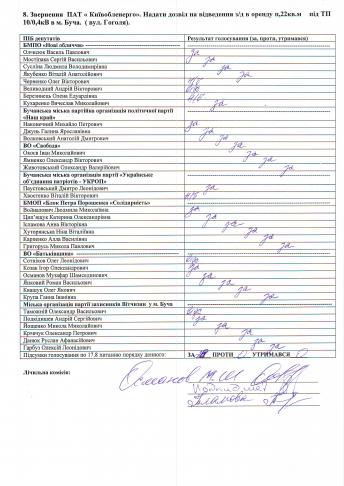 8. Звернення ПАТ « Київобленерго». Надати дозвіл на відведення з/д в оренду п,22кв.м під ТП 10/0,4кВ в м. Буча. ( вул. Гоголя).
ПІБ депутатів Результат голосування (за, проти, утримався)
БМПО «Нові обличчя»
Олексюк Василь Павлович за
Мостіпака Сергій Васильович за
Сусліна Людмила Володимирівна за
Якубенко Віталій Анатолійович за
Черненко Олег Вікторович
Великодний Андрій Вікторович
Березинець Олена Едуардівна
Кухаренко Вячеслав Миколайович за
Бучанська міська партійна організація політичної партії «Наш край»
Наконечний Михайло Петрович за
Джунь Галина Ярославівна за
Волковський Анатолій Дмитрович за
ВО «Свобода»
Оксюк Іван Миколайович за
Яименко Олександр Вікторович за
Животовський Олександр Валерійович за
Бучанська міська організація партії «Українське об'єднання патріотів - УКРОП»
Паустовський Дмитро Леонідович за
Хвостенко Віталій Вікторович
БМОП «Блок Петра Порошенка «Солідарність»
Войналович Людмила Миколаївна за
Цип'ящук Катерина Олександрівна за
Ісламова Анна Вікторівна за
Хуторянська Ніна Віталіївна за
Карпенко Алла Василівна за
Григорук Микола Павлович за
ВО «Батьківщина»
Сотніков Олег Леонідович
Козак Ігор Олександрович за
Османов Музафар Шамсединович за
Янковий Роман Васильович за
Кашшук Олег Якович за
Крупа Ганна Іванівна за
Міська організація партії захисників Вітчизни у м. Буча
Таможній Олександр Васильович
Поджидишев Андрій Сергійович за
Йощенко Микола Миколайович за
Криччук Олександр Петрович за
Данюк Руслан Афанасійович за
Гарбуз Олексій Леонідович за
Підсумки голосування по 17.8 питанню порядку денного: ЗА ПРОТИ 0 УТРИМАВСЯ 0
Лічильна комісія: Османов М.Ш.